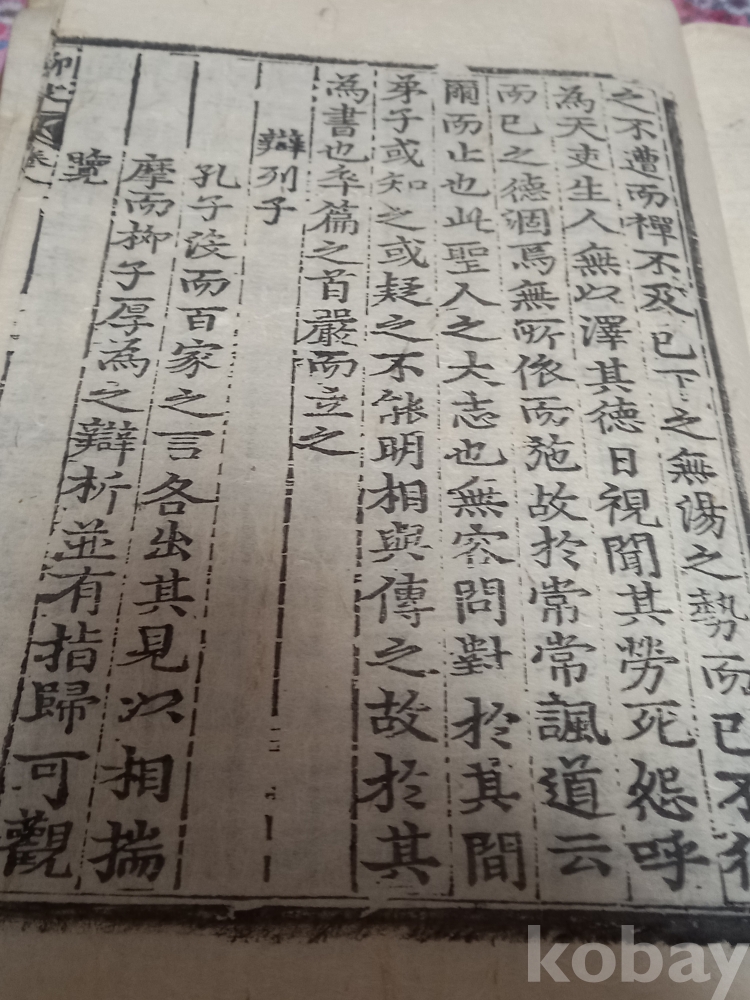 之不遭而禪不及已下之無湯之勢而已不
為天吏生人無以澤其德日視聞其勞死怨呼
而已之德涸焉無所依而施故於常常諷道云
爾而止也此聖人之大志也無容問對於其間
弟子或知之或疑之不能明相與傳之故於其
為書也卒篇之首嚴而立之
辯列子
孔子沒而百家之言各出其見以相揣
摩而柳子厚為之辯析並有指歸可觀
覽
柳文 卷
kobay